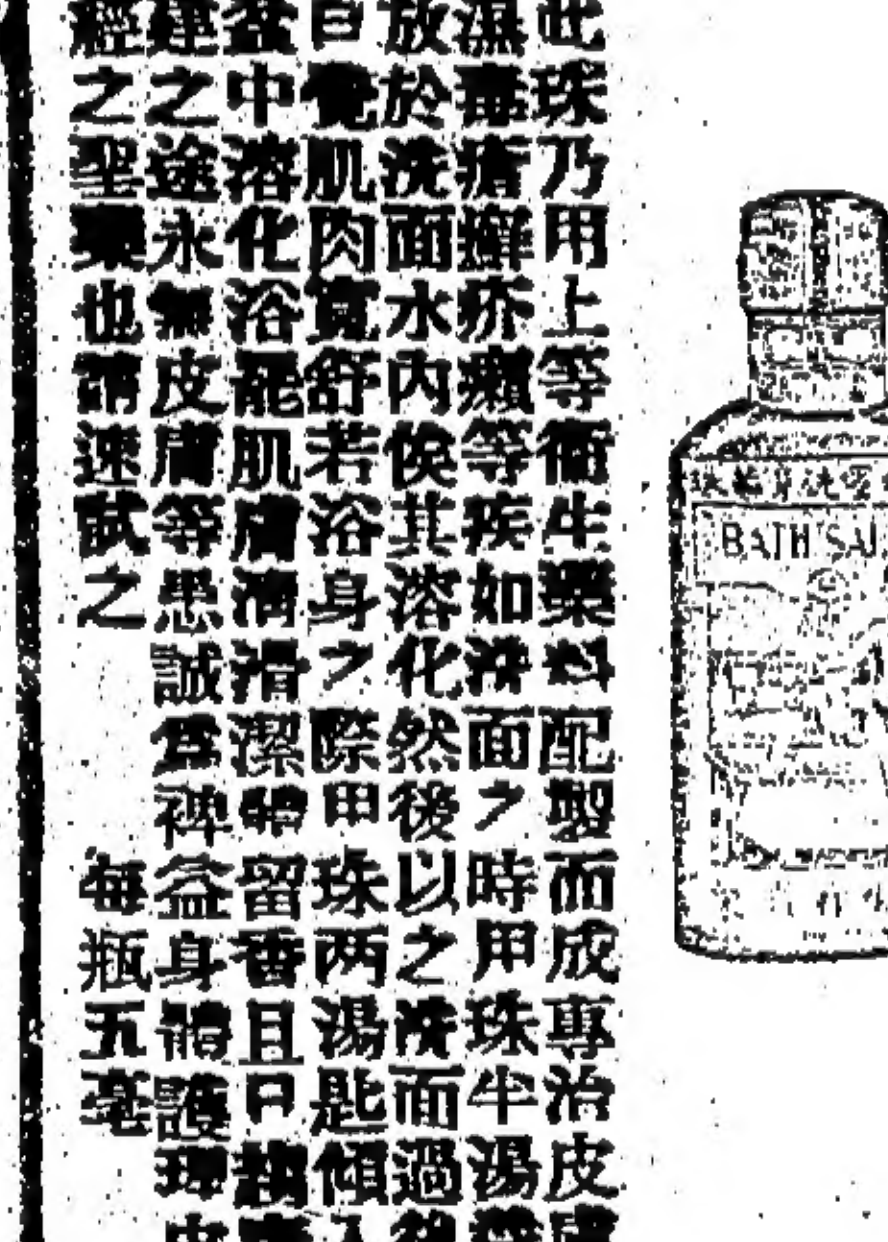 此珠乃用上等衛生藥料配製而成專治皮膚
濕毒瘡癬疥癩等疾如洗面之時用珠半湯
放於洗面水內俟其溶化然後以之洗面過後
日覺肌肉寬舒若浴身之際用珠两湯匙傾入
盆中溶化浴罷肌膚滑潔體留香且日
建之途永無皮膚等患誠為裨益身體護理
經之聖藥也請速試之 每瓶五毫
BATH SAL